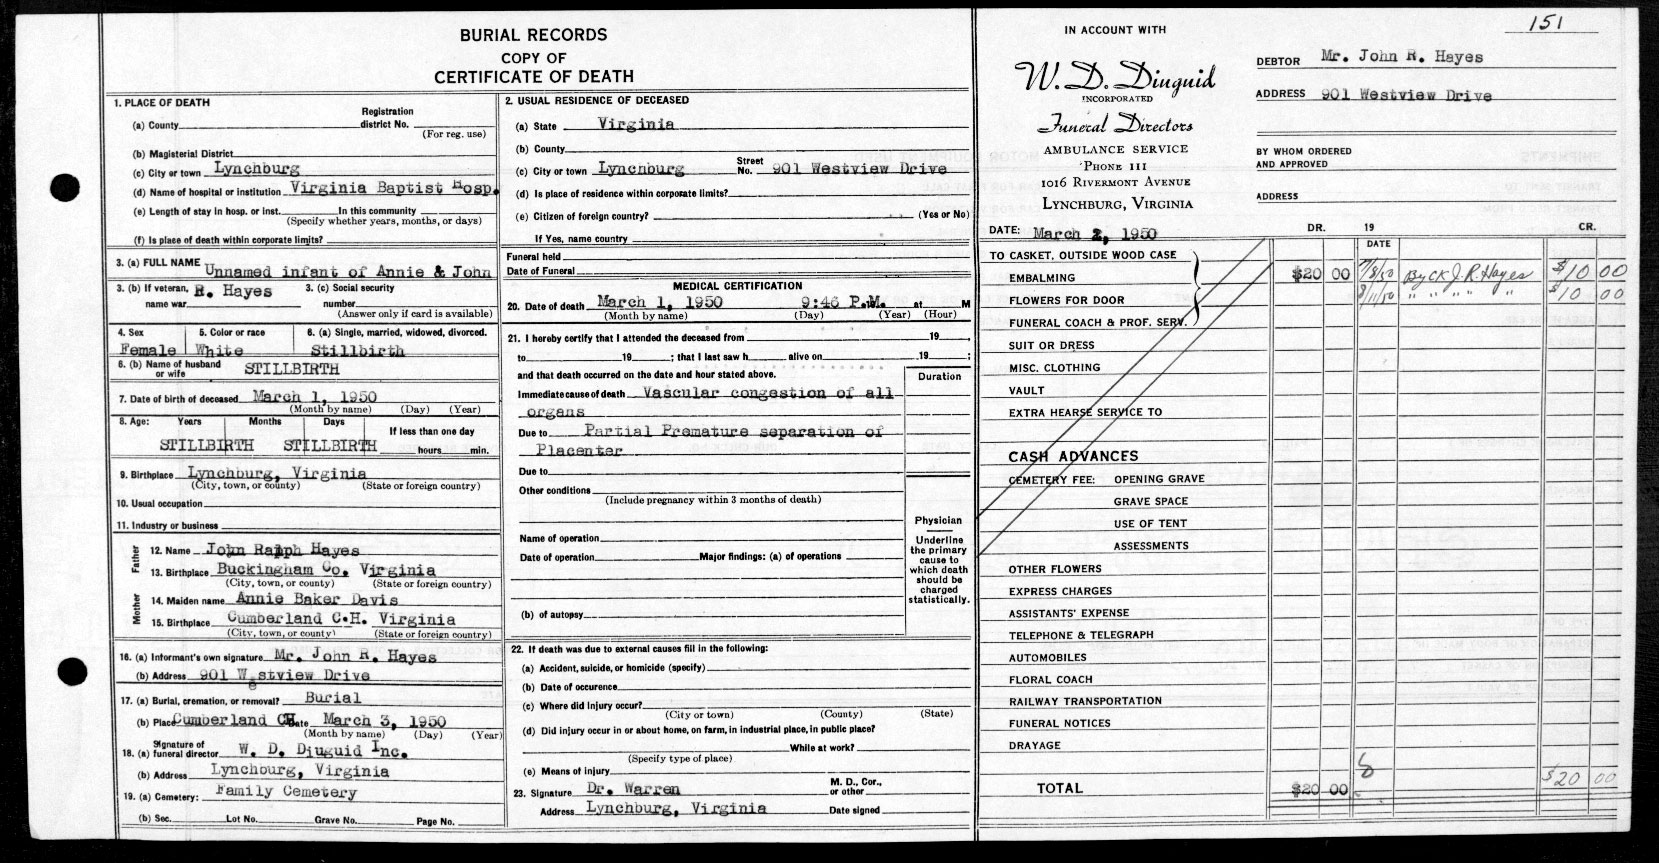 BURIAL RECORDS
COPY OF
CERTIFICATE OF DEATH
1. PLACE OF DEATH
Registration
(a) County district No.
(For reg. use)
(b) Magisterial District
(c) City or town Lynchburg
(d) Name of hospital or institution Virginia Baptist Hosp.
(e) Length of stay in hosp. or inst. In this community
(Specify whether years, months, or days)
(f) Is place of death within corporate limits?
3. (a) FULL NAME Unnamed infant of Annie & John
3. (b) If veteran, R. Hayes 3. (c) Social security
name war number
(Answer only if card is available)
4. Sex 5. Color or race 6. (a) Single, married, widowed, divorced.
Female White Stillbirth
6. (b) Name of husband STILLBIRTH
or wife
7. Date of birth of deceased March 1, 1950
(Month by name) (Day) (Year)
8. Age: Years Months Days If less than one day
STILLBIRTH STILLBIRTH hours min.
9. Birthplace Lynchburg, Virginia
(City, town, or county) (State or foreign country)
10. Usual occupation
11. Industry or business
Father
12. Name John Ralph Hayes
13. Birthplace Buckingham Co. Virginia
(City, town, or county) (State or foreign country)
Mother
14. Maiden name Annie Baker Davis
15. Birthplace Cumberland C.H. Virginia
(City, town, or county) (State or foreign country)
16. (a) Informant's own signature Mr. John R. Hayes
(b) Address 901 Westview Drive
17. (a) Burial, cremation, or removal? Burial
(b) Place Cumberland CH Date March 3, 1950
(Month by name) (Day) (Year)
18. (a) Signature of funeral director W. D. Diuguid Inc.
(b) Address Lynchburg, Virginia
19. (a) Cemetery: Family Cemetery
(b) Sec. Lot No. Grave No. Page No.
2. USUAL RESIDENCE OF DECEASED
(a) State Virginia
(b) County
(c) City or town Lynchburg Street No. 901 Westview Drive
(d) Is place of residence within corporate limits?
(e) Citizen of foreign country? (Yes or No)
If Yes, name country
Funeral held
Date of Funeral
MEDICAL CERTIFICATION
20. Date of death March 1, 1950 9:46 P.M. at M
(Month by name) (Day) (Year) (Hour)
21. I hereby certify that I attended the deceased from 19 ,
to 19 ; that I last saw h alive on , 19 ;
and that death occurred on the date and hour stated above.
Duration
Immediate cause of death Vascular congestion of all
organs
Due to Partial Premature separation of
Placenter
Due to
Other conditions
(Include pregnancy within 3 months of death)
Name of operation
Date of operation Major findings: (a) of operations
(b) of autopsy
Physician
Underline
the primary
cause to
which death
should be
charged
statistically.
22. If death was due to external causes fill in the following:
(a) Accident, suicide, or homicide (specify)
(b) Date of occurence
(c) Where did Injury occur?
(City or town) (County) (State)
(d) Did injury occur in or about home, on farm, in industrial place, in public place?
While at work?
(Specify type of place)
(e) Means of injury
23. Signature Dr. Warren M. D., Cor., or other
Address Lynchburg, Virginia Date signed
151
IN ACCOUNT WITH
W. D. Diuguid
INCORPORATED
Funeral Directors
AMBULANCE SERVICE
'PHONE 111
1016 RIVERMONT AVENUE
LYNCHBURG, VIRGINIA
DATE: March 2, 1950
DEBTOR Mr. John R. Hayes
ADDRESS 901 Westview Drive
BY WHOM ORDERED
AND APPROVED
ADDRESS
DR. 19 CR.
DATE
TO CASKET, OUTSIDE WOOD CASE
EMBALMING $20 00 7/8/50 By Ck J. R. Hayes $10 00
FLOWERS FOR DOOR 8/11/50 " " " " " $10 00
FUNERAL COACH & PROF. SERV.
SUIT OR DRESS
MISC. CLOTHING
VAULT
EXTRA HEARSE SERVICE TO
CASH ADVANCES
CEMETERY FEE: OPENING GRAVE
GRAVE SPACE
USE OF TENT
ASSESSMENTS
OTHER FLOWERS
EXPRESS CHARGES
ASSISTANTS' EXPENSE
TELEPHONE & TELEGRAPH
AUTOMOBILES
FLORAL COACH
RAILWAY TRANSPORTATION
FUNERAL NOTICES
DRAYAGE
TOTAL $20 00 $20 00